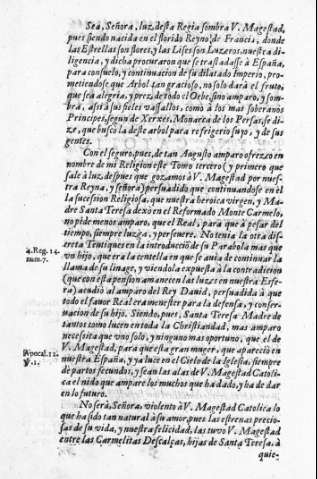 Sea, Señora, luz, desta Regia sombra V. Magestad,
pues siendo nacida en el florido Reyno de Francia, donde
las Estrellas son flores, y las Lises son Luzeros, nuestra di-
ligencia, y dicha procuraron que se trasladasse à España,
para consuelo, y continuacion de su dilatado Imperio, pro-
metiendose que Arbol tan gracioso, no solo darà el fruto,
que sea alegria, y prez, de todo el Orbe, sino amparo, y som-
bra, assi à sus fieles vassallos, como à los mas soberanos
Principes, segun de Xerxes, Monarca de los Persas, se di-
ze, que busco la deste arbol para refrigerio suyo, y de sus
gentes.
Con el seguro, pues, de tan Augusto amparo ofrezco en
nombre de mi Religion este Tomo tercero (y primero que
sale à luz, despues que gozamos à V. Magestad por nues-
tra Reyna, y señora) persuadido que continuandose en èl
la sucession Religiosa, que nuestra heroica virgen, y Ma-
dre Santa Teresa dexò en el Reformado Monte Carmelo,
no pide menos amparo, que el Real, para que à pesar del
tiempo, siempre luzga, y persevere. No tenia la otra dis-
creta Teutiques en la introducciō de su Parabola mas que
vn hijo, que era la centella en que se avia de continuar la
llama de su linage, y viendola expuesta à la contradicion
(que con esta pension amanecen las luzes en nuestra Esfe-
ra) acudiò al amparo del Rey David, persuadida à que
todo el favor Real era menester para la defensa, y conser-
vacion de su hijo. Siendo, pues, Santa Teresa Madre de
tantos como lucen en toda la Christiandad, mas amparo
necessita que vno solo, y ninguno mas oportuno, que el de
V. Magestad, para que esta gran muger, que apareciò en
nuestra España, y ya luze en el Cielo de la Iglesia, siempre
de partos fecundos, y sean las alas de V. Magestad Catoli-
ca el nido que ampare los muchos que ha dado, y ha de dar
en lo futuro.
No serà, Señora, violento à V. Magestad Catolica lo
que ha sido tan natural à su amor, pues las estrenas precio-
sas de su vida, y nuestra felicidad, las tuvo V. Magestad
entre las Carmelitas Descalças, hijas de Santa Teresa, à
quie-
2. Reg. 14.
num. 7.
Apocal. 12.
V. 1.